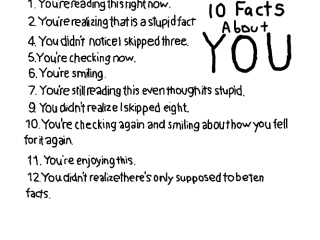 10 Facts
About
YOU
1. You're reading this right now.
2. You're realizing that is a stupid fact
4. You didn't notice I skipped three.
5.You're checking now.
6. You're smiling.
7. You're still reading this even though its stupid.
9. You didn't realize I skipped eight.
10. You're checking again and smiling about how you fell
for it again.
11. You're enjoying this.
12 You didn't realize there's only supposed to be ten
facts.